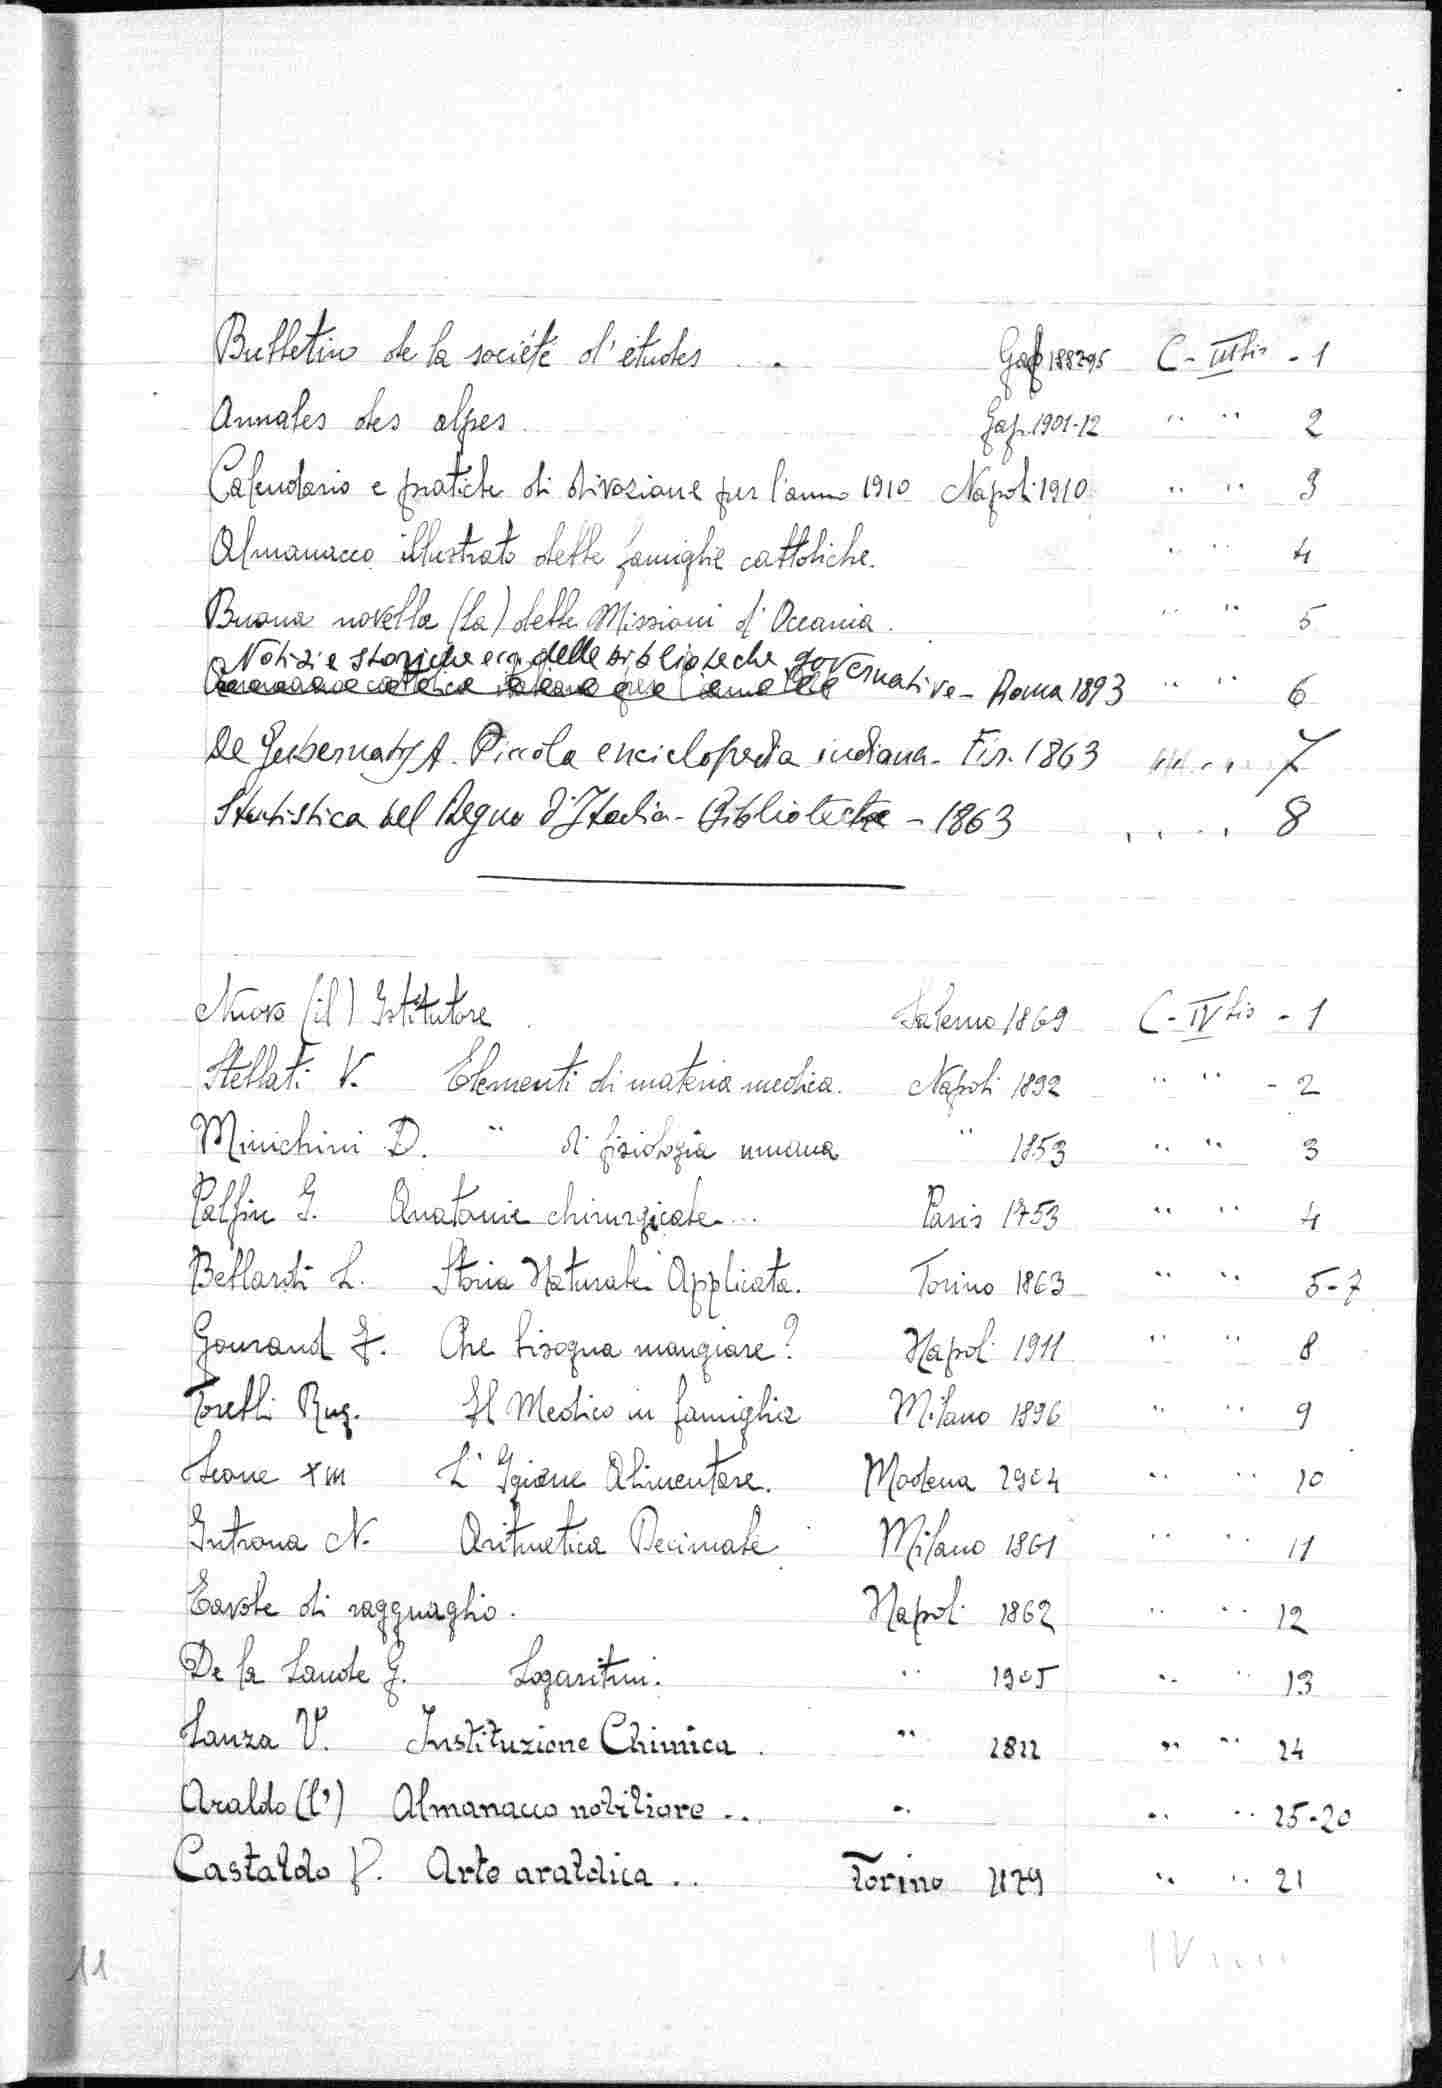 Bulletin de la société d'études .. Gap 188295 C - III bis - 1
Annales des alpes Gap. 1901-12 " " 2
Calendario e pratiche di divozione per l'anno 1910 Napoli 1910 " " 3
Almanacco illustrato delle famiglie cattoliche. " " 4
Buona novella (La) delle Missioni d'Oceania. " " 5
Notizie storiche ecc. delle biblioteche governative - Roma 1893 " " 6
De Gubernatis A. Piccola enciclopedia indiana - Fir. 1863 " " 7
Statistica del Regno d'Italia - Biblioteche - 1863 " " 8
Nuovo (il) Istitutore Salerno 1869 C - IV bis - 1
Stellati V. Elementi di materia medica. Napoli 1892 " " - 2
Minichini D. " di fisiologia umana " 1853 " " 3
Palfin G. Anatomie chirurgicale... Paris 1753 " " 4
Bellardi L. Storia Naturale Applicata. Torino 1863 " " 5-7
Gourand F. Che bisogna mangiare? Napoli 1911 " " 8
Torelli Rug. Il Medico in famiglia Milano 1896 " " 9
Leone XIII L'Igiene Alimentare. Modena 1904 " " 10
Introna N. Aritmetica Decimale Milano 1861 " " 11
Tavole di ragguaglio. Napoli 1862 " " 12
De la Lande G. Logaritmi. " 1905 " " 13
Lanza V. Instituzione Chimica. " 1822 " " 14
Araldo (l') Almanacco nobiliare .. " " " 15-20
Castaldo P. Arte araldica .. Torino 1879 " " 21
11